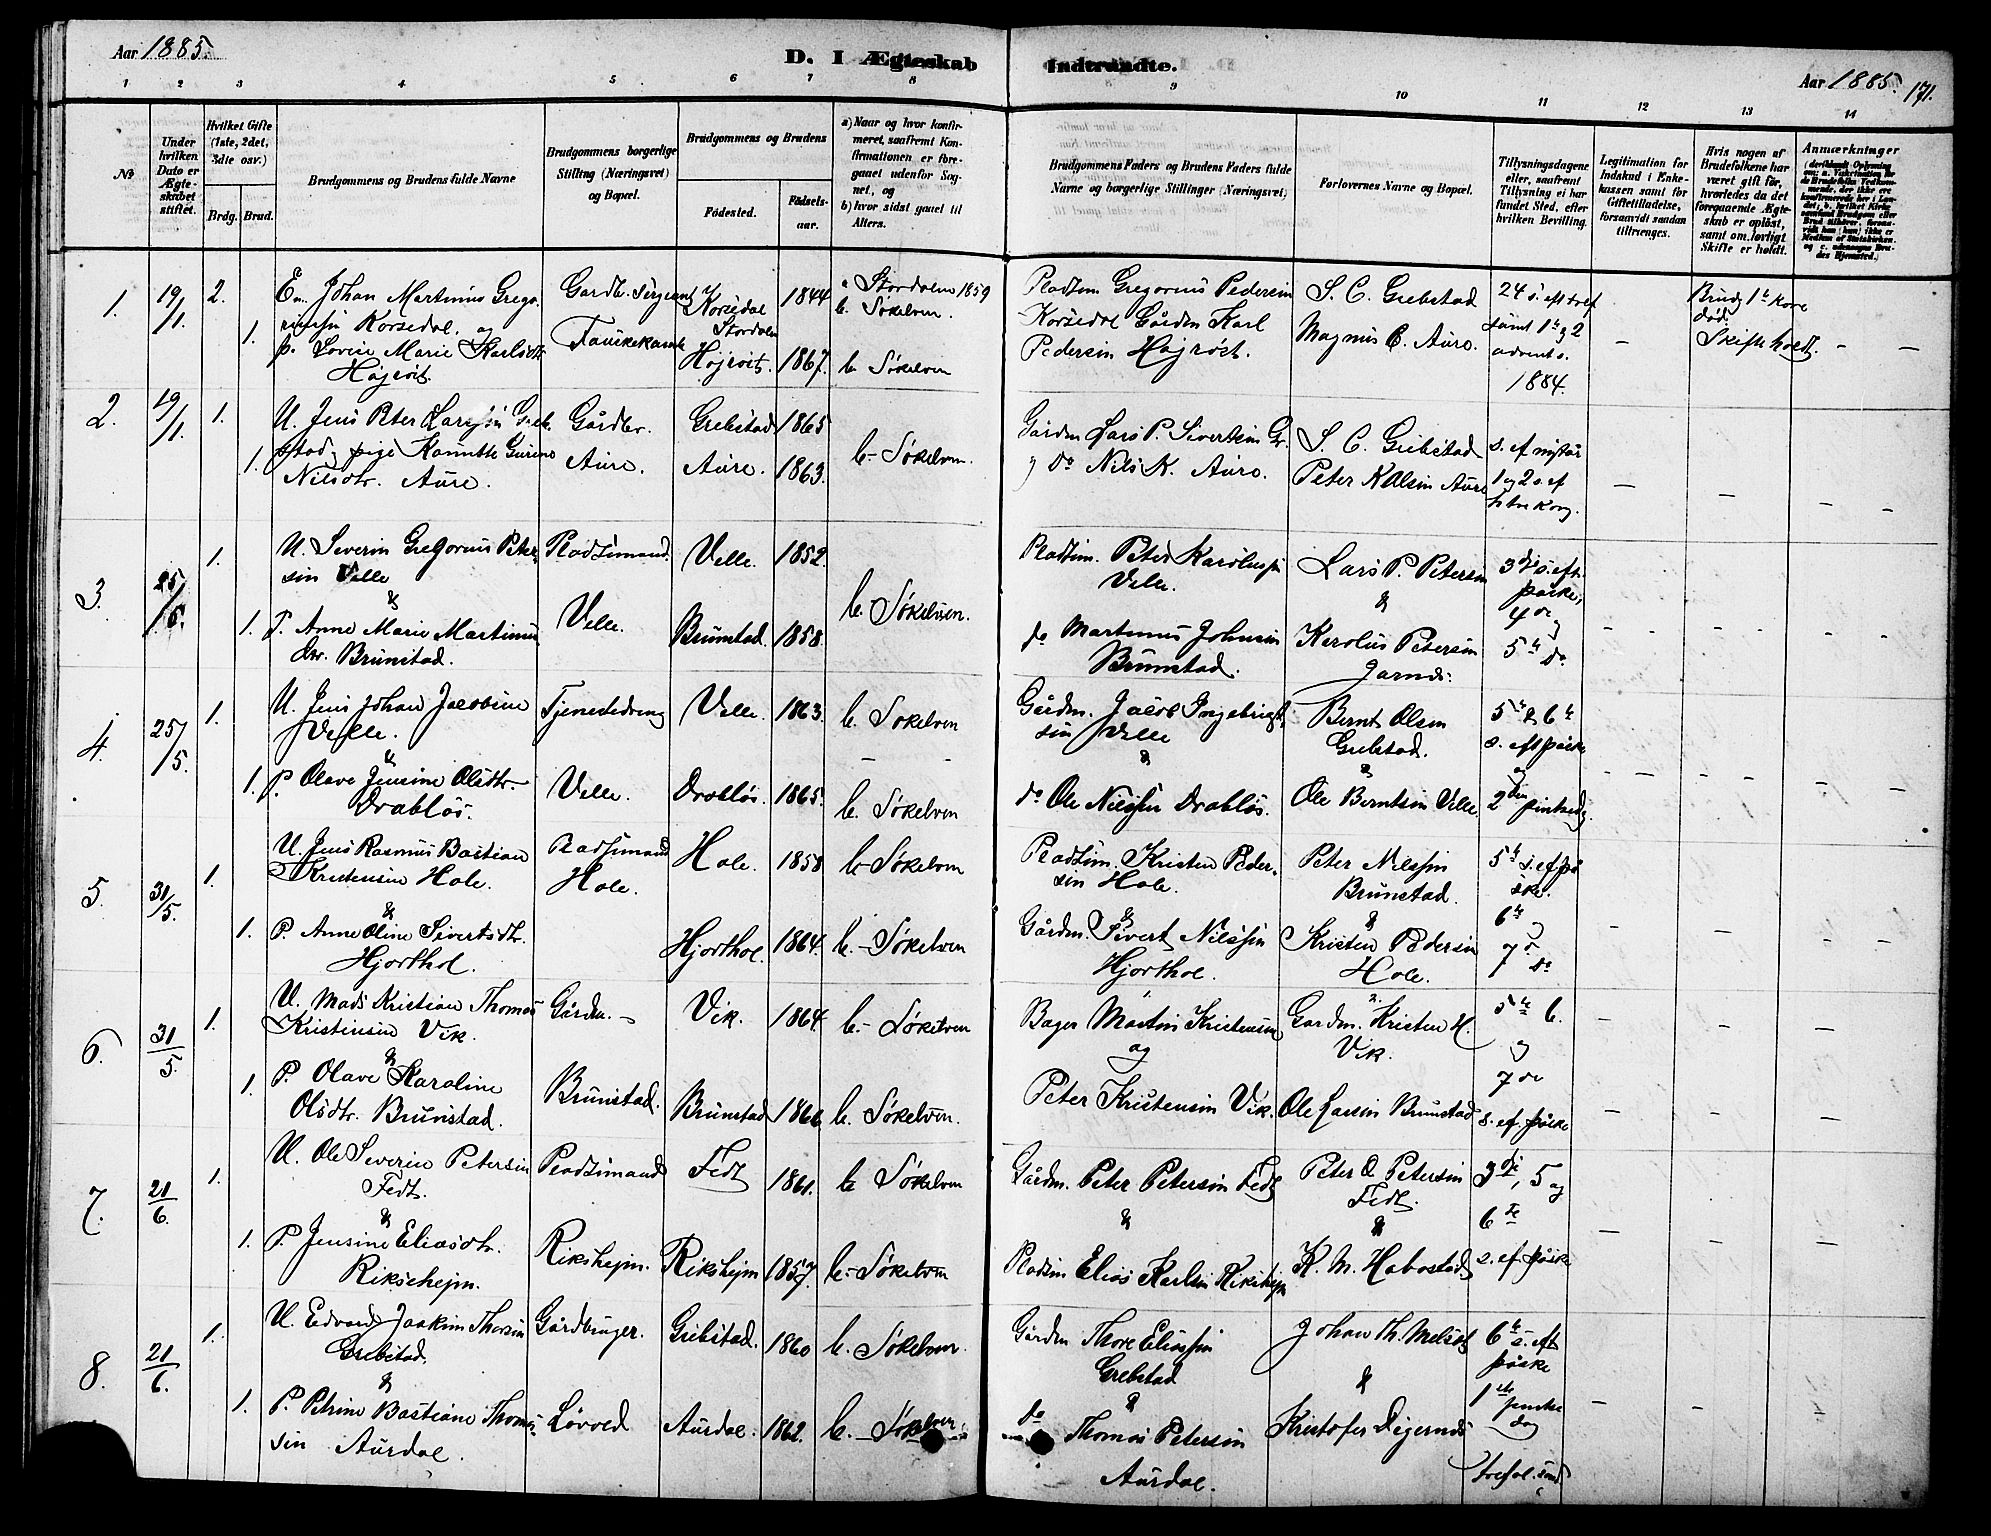 Aar 1885.
D. I Ægteskab Indtraadte.
Aar 1885. 171.
1 2 3 4 5 6 7 8 9 10 11 12 13 14
№
Under hvilken Dato er Ægteskabet stiftet.
Hvilket Gifte (1ste, 2det, 3die osv.)
Brdg. Brud.
Brudgommens og Brudens fulde Navne
Brudgommens borgerlige Stilling (Næringsvei) og Bopæl.
Brudgommens og Brudens
Fødested.
Fødselsaar.
a) Naar og hvor konfirmeret, saafremt Konfirmationen er foregaaet udenfor Sognet, og
b) hvor sidst gaaet til Alters.
Brudgommens Faders og Brudens Faders fulde Navne og borgerlige Stillinger (Næringsvei)
Forlovernes Navne og Bopæl.
Tillysningsdagene eller, saafremt Tillysning ei har fundet Sted, efter hvilken Bevilling.
Legitimation for Indskud i Enkekassen samt for Giftetilladelse, forsaavidt saadan tiltrænges.
Hvis nogen af Brudefolkene har været gift før, hvorledes da det foregaaende Ægteskab er opløst, samt om lovligt Skifte er holdt.
Anmærkninger
1. 19/1. 2. Em. Johan Martinus Grego- Gardbr. sergeant Korsedal 1844 a Stordalen 1859 Pladsm. Gregorius Pedersen S. C. Grebstad 24 s. eft tref Brudg 1te kone
riussen Korsedal og Stordalen b. Søkelven. Korsedal Gården Karl samt 1te og 2 død.
1. p. Lovise Marie Karlsdtr. Fauskekamb Højrøit. 1867. b. Søkelven Pedersen Højrøst. Magnus C. Aure. advents. — Skifte holdt. — —
Højrøit. 1884.
2. 19/1. 1. U. Jens Peter Larssen Greb- Gårdbr. Grebstad 1865 Gården Lars P. Sivertsen Gr. S. C. Grebstad s. ef nytår
1. stad og pige Kanutte Gurine Aure. Aure. 1863. b- Søkelven. og do Nils K. Aure. Peter KAlsen Aure 1 og 2 s. ef
Nilsdtr. Aure. — — — —
3. 25/5. 1. U. Severin Gregorius Peter- Pladsmand. Velle. 1852. Pladsm. Peter Karolussen Lars P. Petersen 3die s. eft.
sen Velle b. Søkelven. Velle. & påske,
& Velle. 4de og
1. P. Anne Marie Martinus Brunstad. 1858. do Martinus Johnsen Kerolus Petersen 5te do.
dtr. Brunstad. Brunstad. Jarnæs.
4. 25/5. 1. U. Jens Johan Jacobsen Tjenestedreng Velle. 1863. b. Søkelven Gårdm. Jacob Ingebrigt- Bernt Olsen 5te & 6te
Velle. sen Velle Grebstad. s. eft påske
& & & og
1. P. Olave Jensine Olsdtr. Velle. Drabløs. 1865. b. Søkelven do Ole Nilssen Drabløs. Ole Berntsen Velle 2den pintsedg.
Drabløs.
5. 31/5. 1. U. Jens Rasmus Bastian Pladsmand Hole. 1858 b- Søkelven Pladsm. Kristen Peder- Peter Nilssen 5te s. ef på
Kristensen Hole. Hole. sen Hole. Brunstad. ske.
& & & 6te og
1. P. Anne Oline Sivertsdtr. Hjorthol. 1864. b.- Søkelven Gårdm. Sivert Nilssen Kristen Pedersen 7de do
Hjorthol. Hjorthol. Hole.
6. 31/5. 1. U. Mads Kristian Thomas Gårdm. - Vik. 1864. b.- Søkelven Bager Martin Kristensen Gardm. Kristen H. 5te 6.
Kristensen Vik. og Vik. og
& 7de
1. P. Olave Karoline Brunstad. Brunstad 1866. b. Søkelven. Peter Kristensen Vik. Ole Larsen Brunstad s. ef. påske
Olsdtr. Brunstad.
7. 21/6. 1. U. Ole Severin Petersen Pladsmand Fedt 1861. b Søkelven Gårdm. Peter Petersen Fedt Peter O. Petersen 3die, 5 og
Fedt. & Fedt. 6te
& &
1. P. Jensine Eliasdtr. Rikshejm. Rikshejm 1857. b.- Søkelven Pladsm Elias Karlsen Rikshejm K. M. Habostad s. ef påske
Rikshejm.
8. 21/6. 1. U. Edvard Joakim Thoresen Gårdbruger. Grebstad. 1860 b. Søkelven Gården Thore Eliassen Johan Th. Melsæt 6te s. eft
Grebstad. Grebstad & påske
& & 1ste pintse
1. P. Petrine Bastiane Thomas- Løvold Aurdal. 1862. b. Søkelven do Thomas Petersen Kristofer Digernes dag
sen Aurdal. Aurdal. trefol. sønd.